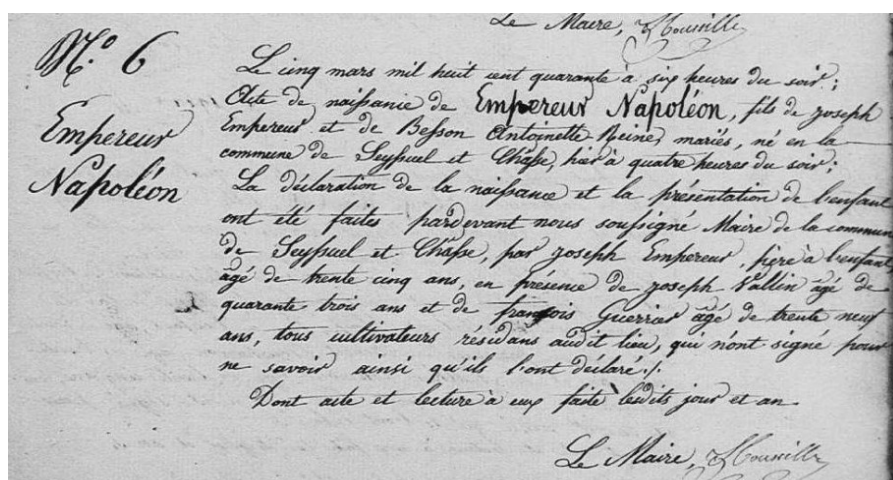 Le Maire,
N.o 6
Empereur
Napoléon
Le cinq mars mil huit cent quarante à six heures du soir;
Acte de naissance de Empereur Napoléon, fils de joseph
Empereur et de Besson Antoinette Reine, mariés, né en la
commune de Seyssuel et Chasse, hier à quatre heures du soir;
La déclaration de la naissance et la présentation de l'enfant
ont été faites pardevant nous soussigné Maire de la commune
de Seyssuel et Chasse, par joseph Empereur, père à l'enfant
âgé de trente cinq ans, en présence de joseph Vallin âgé de
quarante trois ans et de françois Guerrier âgé de trente neuf
ans, tous cultivateurs résidans audit lieu, qui n'ont signé pour
ne savoir ainsi qu'ils l'ont déclaré./.
Dont acte et lecture à eux faite lesdits jour et an
Le Maire,